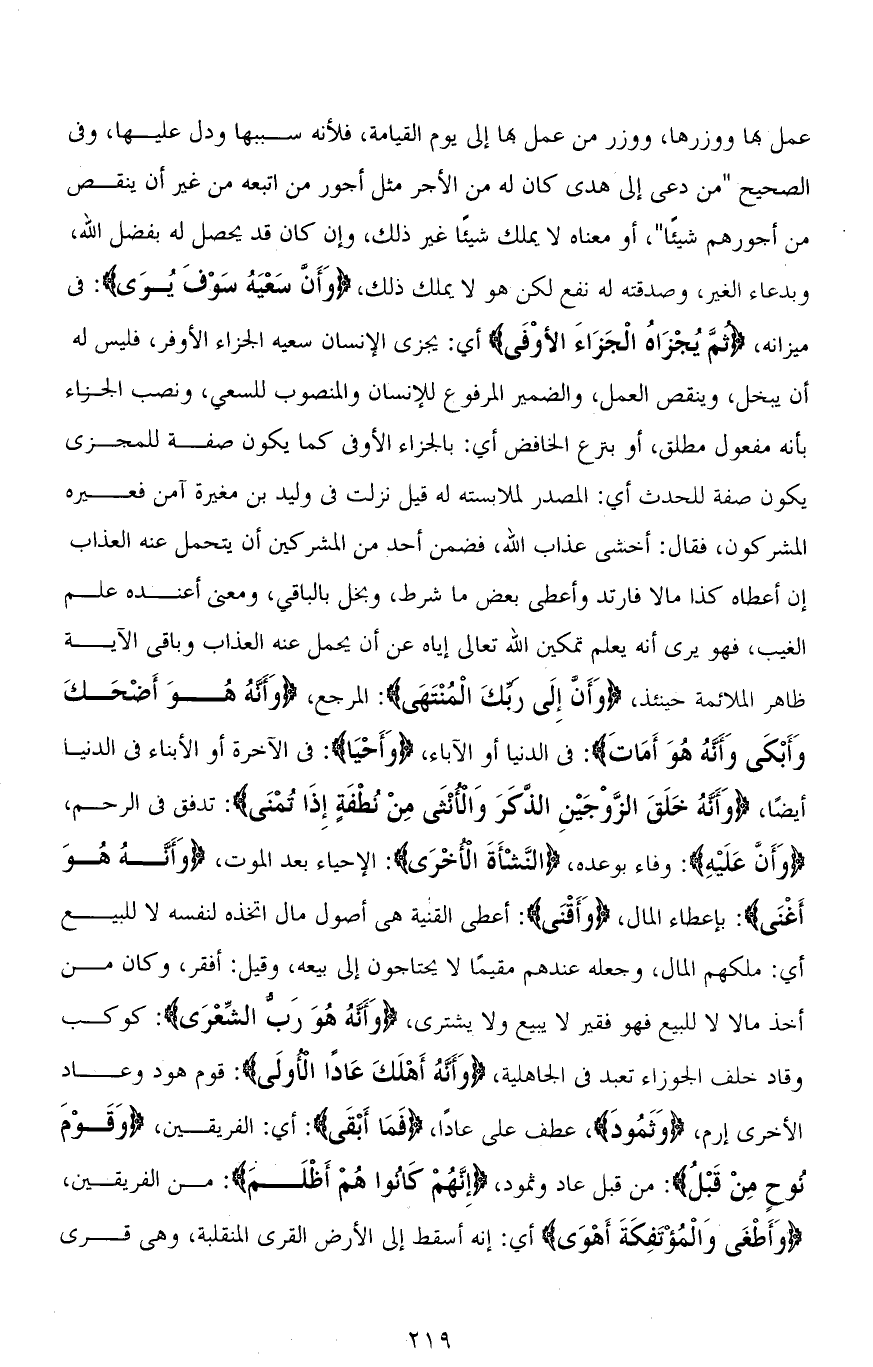 عمل بها ووزرها، ووزر من عمل بها إلى يوم القيامة، فلأنه سببها ودل عليها، وفى
الصحيح "من دعى إلى هدى كان له من الأجر مثل أجور من اتبعه من غير أن ينقص
من أجورهم شيئًا"، أو معناه لا يملك شيئًا غير ذلك، وإن كان قد يحصل له بفضل الله،
وبدعاء الغير، وصدقته له نفع لكن هو لا يملك ذلك، ﴿وَأَنَّ سَعْيَهُ سَوْفَ يُرَى﴾: فى
ميزانه، ﴿ثُمَّ يُجْزَاهُ الْجَزَاءَ الأوْفَى﴾ أي: يجزى الإنسان سعيه الجزاء الأوفر، فليس له
أن يبخل، وينقص العمل، والضمير المرفوع للإنسان والمنصوب للسعي، ونصب الجزاء
بأنه مفعول مطلق، أو بنزع الخافض أي: بالجزاء الأوفى كما يكون صفة للمجزى
يكون صفة للحدث أي: المصدر لملابسته له قيل نزلت فى وليد بن مغيرة آمن فعيره
المشركون، فقال: أخشى عذاب الله، فضمن أحد من المشركين أن يتحمل عنه العذاب
إن أعطاه كذا مالا فارتد وأعطى بعض ما شرط، وبخل بالباقي، ومعنى أعنده علم
الغيب، فهو يرى أنه يعلم تمكين الله تعالى إياه عن أن يحمل عنه العذاب وباقى الآية
ظاهر الملائمة حينئذ، ﴿وَأَنَّ إِلَى رَبِّكَ الْمُنْتَهَى﴾: المرجع، ﴿وَأَنَّهُ هُوَ أَضْحَكَ
وَأَبْكَى وَأَنَّهُ هُوَ أَمَاتَ﴾: فى الدنيا أو الآباء، ﴿وَأَحْيَا﴾: فى الآخرة أو الأبناء فى الدنيا
أيضًا، ﴿وَأَنَّهُ خَلَقَ الزَّوْجَيْنِ الذَّكَرَ وَالْأُنْثَى مِنْ نُطْفَةٍ إِذَا تُمْنَى﴾: تدفق فى الرحم،
﴿وَأَنَّ عَلَيْهِ﴾: وفاء بوعده، ﴿النَّشْأَةَ الْأُخْرَى﴾: الإحياء بعد الموت، ﴿وَأَنَّهُ هُوَ
أَغْنَى﴾: بإعطاء المال، ﴿وَأَقْنَى﴾: أعطى القنية هى أصول مال اتخذه لنفسه لا للبيع
أي: ملكهم المال، وجعله عندهم مقيمًا لا يحتاجون إلى بيعه، وقيل: أفقر، وكان من
أخذ مالا لا للبيع فهو فقير لا يبيع ولا يشترى، ﴿وَأَنَّهُ هُوَ رَبُّ الشِّعْرَى﴾: كوكب
وقاد خلف الجوزاء تعبد فى الجاهلية، ﴿وَأَنَّهُ أَهْلَكَ عَادًا الْأُولَى﴾: قوم هود وعاد
الأخرى إرم، ﴿وَثَمُودَ﴾، عطف على عادًا، ﴿فَمَا أَبْقَى﴾: أي: الفريقين، ﴿وَقَوْمَ
نُوحٍ مِنْ قَبْلُ﴾: من قبل عاد وثمود، ﴿إِنَّهُمْ كَانُوا هُمْ أَظْلَمَ﴾: من الفريقين،
﴿وَأَطْغَى وَالْمُؤْتَفِكَةَ أَهْوَى﴾ أي: إنه أسقط إلى الأرض القرى المنقلبة، وهى قرى
٢١٩